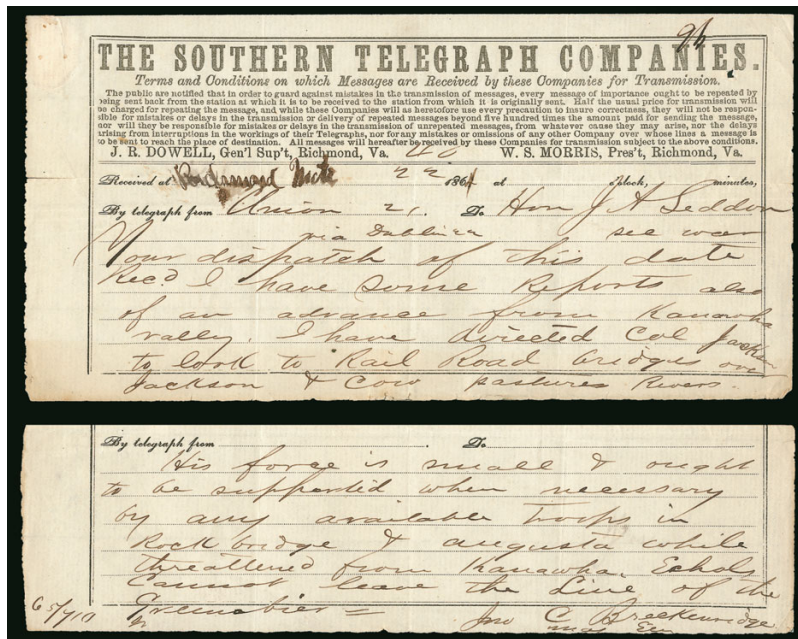 96
THE SOUTHERN TELEGRAPH COMPANIES.
Terms and Conditions on which Messages are Received by these Companies for Transmission.
The public are notified that in order to guard against mistakes in the transmission of messages, every message of importance ought to be repeated by
being sent back from the station at which it is to be received to the station from which it is originally sent. Half the usual price for transmission will
be charged for repeating the message, and while these Companies will as heretofore use every precaution to insure correctness, they will not be respon-
sible for mistakes or delays in the transmission or delivery of repeated messages beyond five hundred times the amount paid for sending the message,
nor will they be responsible for mistakes or delays in the transmission of unrepeated messages, from whatever cause they may arise, nor the delays
arising from interruptions in the workings of their Telegraphs, nor for any mistakes or omissions of any other Company over whose lines a message is
to be sent to reach the place of destination. All messages will hereafter be received by these Companies for transmission subject to the above conditions.
J. R. DOWELL, Gen'l Sup't, Richmond, Va. W. S. MORRIS, Pres't, Richmond, Va.
Received at Richmond 22 1864 at o'clock, minutes,
By telegraph from Union 21. To Hon J A Seddon
via Dublin sec war
Your dispatch of this date
Recd I have some Reports also
of an advance from Kanawha
valley. I have directed Col Jackson
to look to Rail Road bridges over
Jackson & Cow pastures Rivers.
By telegraph from To
His force is small & ought
to be supported when necessary
by any available Troops in
Rockbridge & augusta while
threattened from Kanawha. Echols
Cannot leave the Line of the
Greenabier =
Jno C. Breckenridge
Maj Gen
65/710